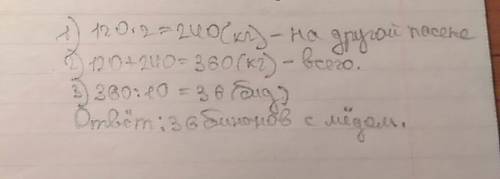 1) 120·2=240(кг)-на другой пасеке
2) 120+240=360(кг)-всего.
3) 360:10=36(бид)
Ответ: 36 бидонов с мёдом.